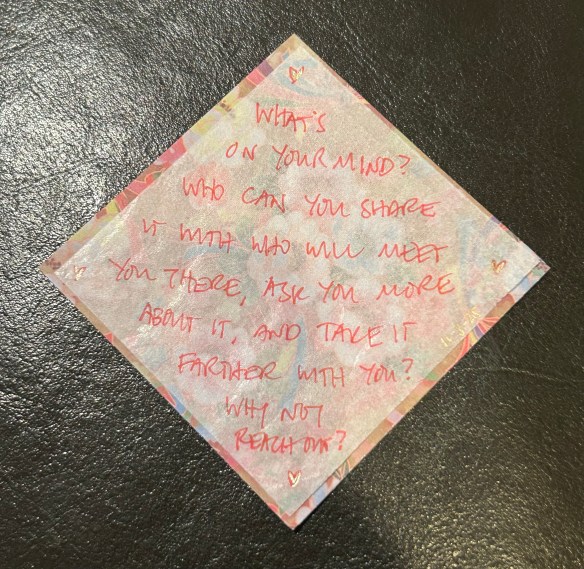 WHAT'S
ON YOUR MIND?
WHO CAN YOU SHARE
IT WITH WHO WILL MEET
YOU THERE, ASK YOU MORE
ABOUT IT, AND TAKE IT
FARTHER WITH YOU?
WHY NOT
REACH OUT?